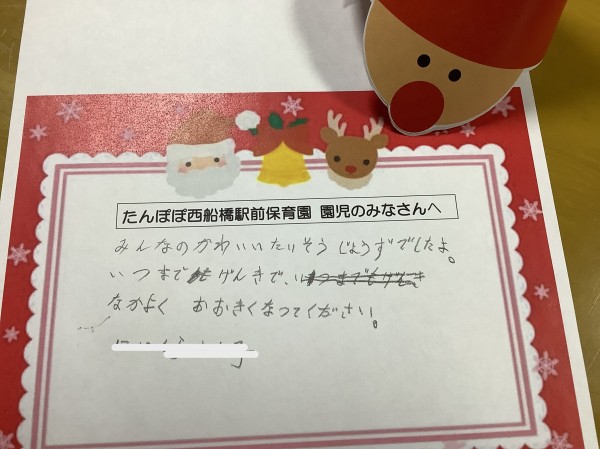 たんぽぽ西船橋駅前保育園 園児のみなさんへ
みんなのかわいいたいそう じょうずでしたよ。
いつまでもげんきで、
なかよく おおきくなってください。